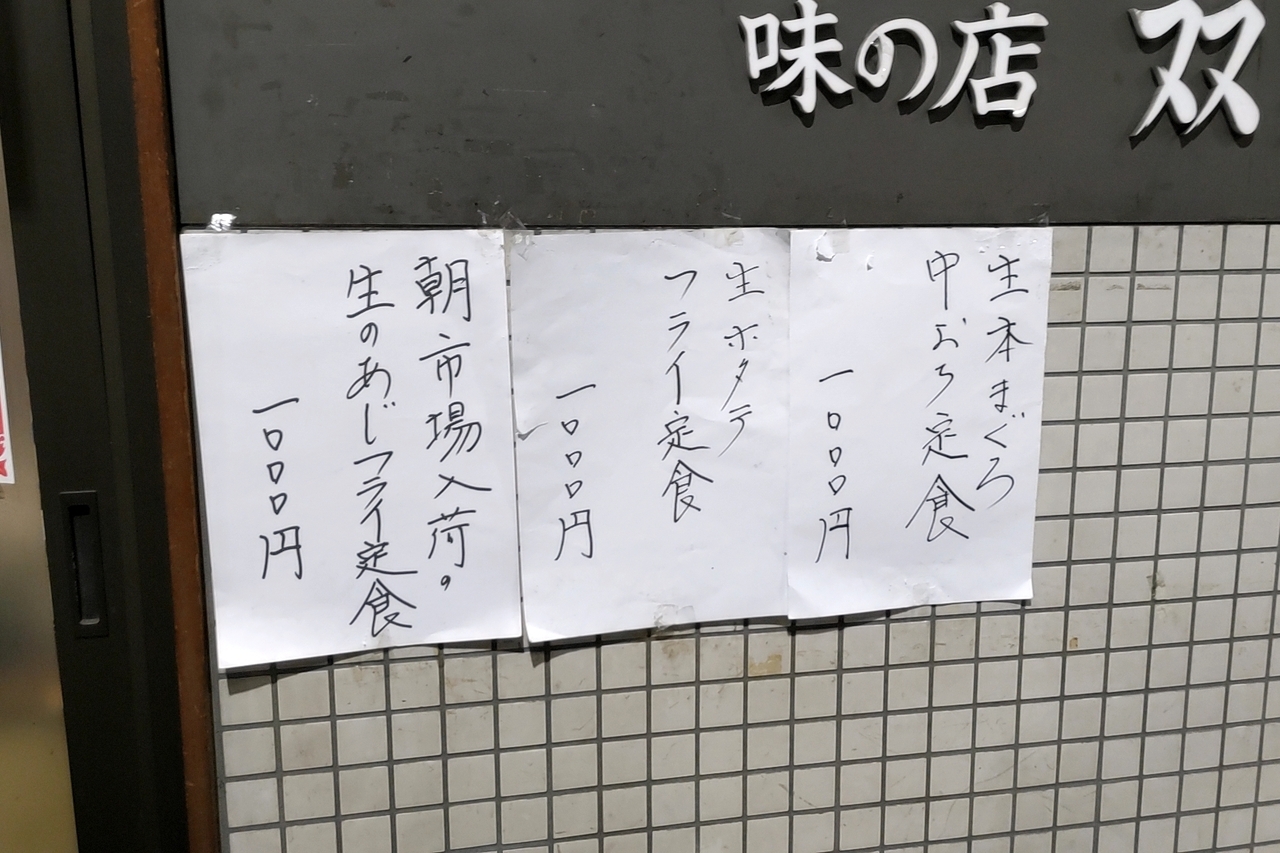 味の店 双
生本まぐろ
中おち定食
一〇〇〇円
生ホタテ
フライ定食
一〇〇〇円
朝市場入荷。
生のあじフライ定食
一〇〇〇円